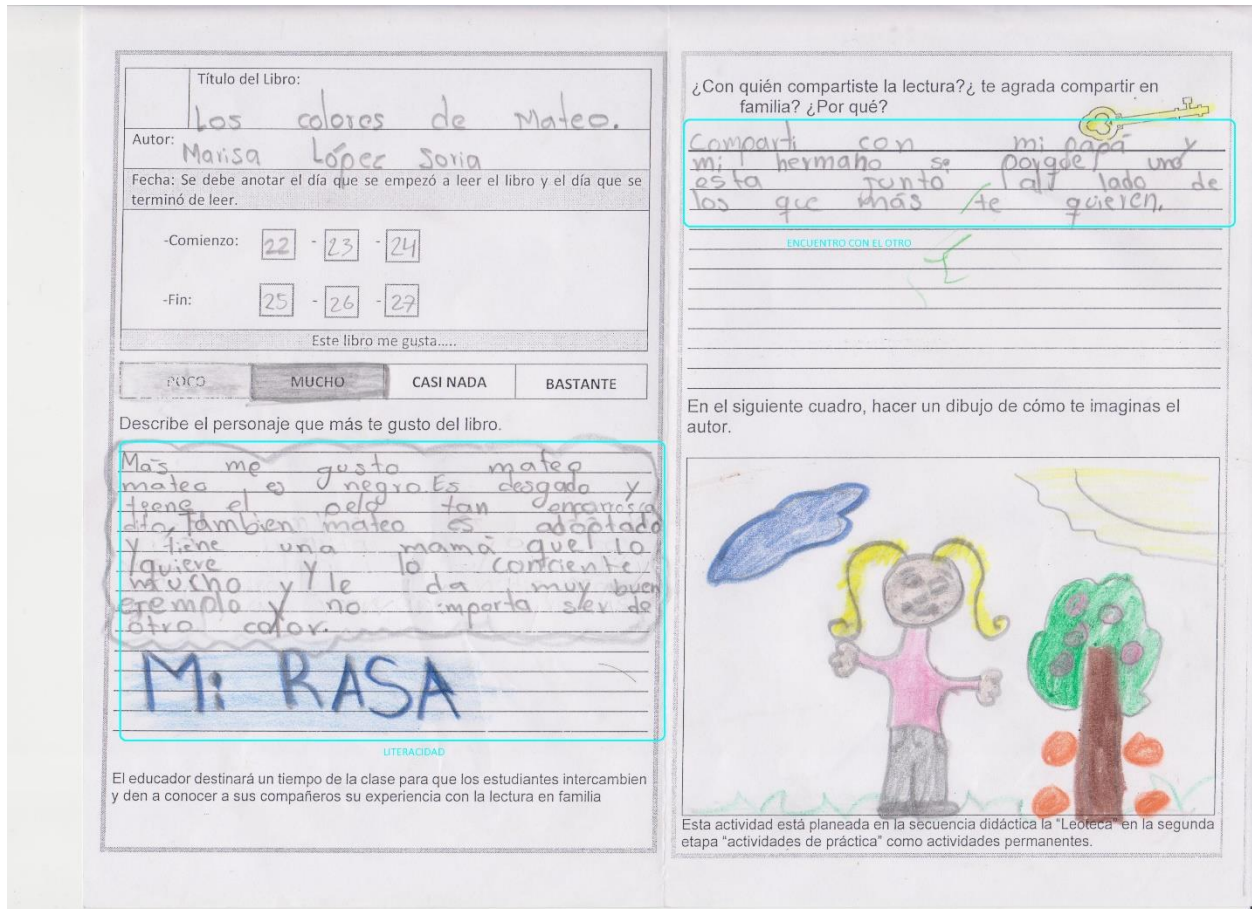 Título del Libro:
Los colores de Mateo.
Autor:
Marisa López Soria
Fecha: Se debe anotar el día que se empezó a leer el libro y el día que se
terminó de leer.
-Comienzo: 22 - 23 - 24
-Fin: 25 - 26 - 27
Este libro me gusta.....
POCO MUCHO CASI NADA BASTANTE
Describe el personaje que más te gusto del libro.
Más me gusto mateo
mateo es negro. Es desgado y
tiene el pelo tan
dito, tambien mateo es adoptado
y tiene una mamá que lo
quiere y lo conciente
mucho y le da muy buen
eremplo y no importa ser de
otro color.
Mi RASA
LITERACIDAD
El educador destinará un tiempo de la clase para que los estudiantes intercambien
y den a conocer a sus compañeros su experiencia con la lectura en familia
¿Con quién compartiste la lectura?¿ te agrada compartir en
familia? ¿Por qué?
Comparti con mi papá y
mi hermano se porque uno
esta junto al lado de
los que más te quieren.
ENCUENTRO CON EL OTRO
En el siguiente cuadro, hacer un dibujo de cómo te imaginas el
autor.
Esta actividad está planeada en la secuencia didáctica la "Leoteca" en la segunda
etapa "actividades de práctica" como actividades permanentes.